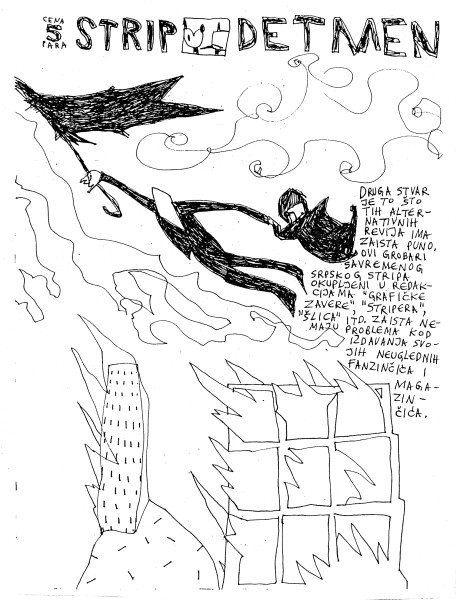 CENA
5
PARA
STRIP DETMEN
DRUGA STVAR
JE TO ŠTO
TIH ALTER-
NATIVNIH
REVIJA IMA
ZAISTA PUNO.
OVI GROBARI
SAVREMENOG
SRPSKOG STRIPA
OKUPLJENI U REDAK-
CIJAMA "GRAFIČKE
ZAVERE" "STRIPERA",
"ŠLICA", ITD. ZAISTA NE-
MAJU PROBLEMA KOD
IZDAVANJA SVO-
JIH NEUGLEDNIH
FANZINČIĆA I
MAGA-
ZIN-
ČIĆA.